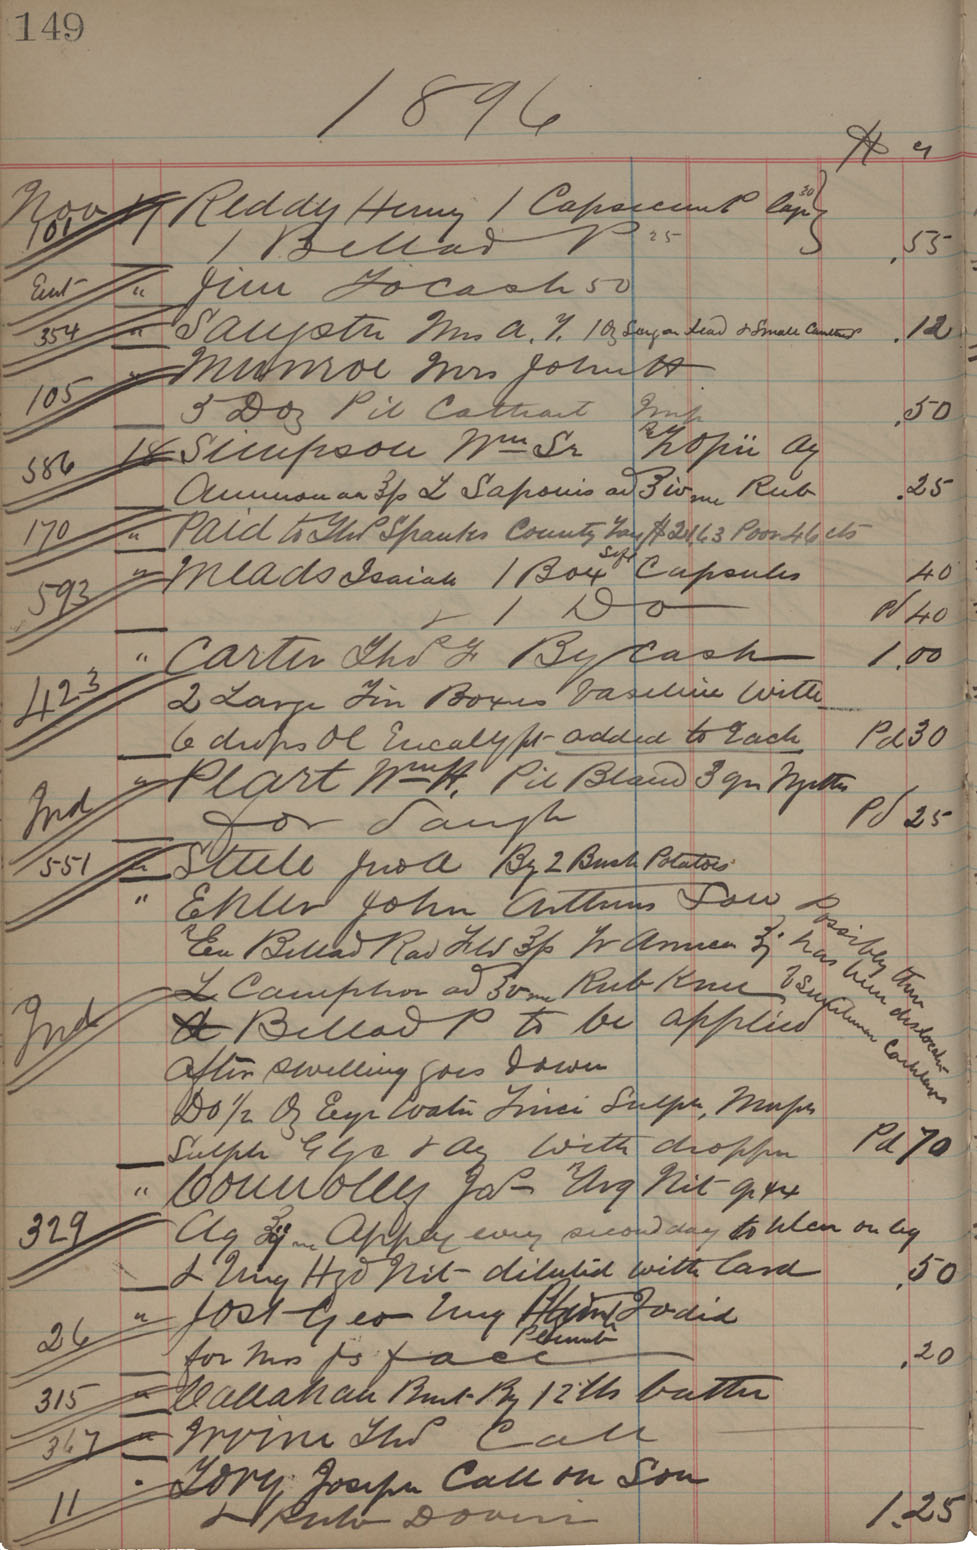 149
1896
$ c
Nov 17 Reddy Henry 1 Capsicum P 30
101 1 Bellad P 25 .55
Ent " Jim To Cash 50
354 " Mrs A. Y. 1 Oz Sugar Lead & Small .12
105 " Munroe Mrs John H
3 Doz Pil Cathart Imp .50
586 18 Simpson Wm Sr Opii Aq
Ammon L Saponis ad Rub .25
170 " Paid to Thos County Tax Poor 46 cts
593 " Meads Isaiah 1 Box Soft Capsules 40
& 1 Do Pd 40
" Carter Thos F By Cash 1.00
423 2 Large Tin Boxes Vaseline with
6 drops Ol Eucalypt added to Each Pd 30
Ind " Plart Wm H. Pil Blaud 3 grs
for daugh Pd 25
551 " Steele Jno A By 2 Bush Potatoes
" John Arthurs Son
Bellad Rad Fld Tr Arnica
Possibly
has been dislocated
Ind L Camphor ad Rub Knee
& Bellad P to be applied
after swelling goes down
Do 1/2 Oz Eye Water Zinci Sulph, Morph
Sulph Glyc & Aq with dropper Pd 70
" Connolly Jas Arg Nit gr
329 Aq Apply every second day to Ulcer on leg
& Ung Hyd Nit diluted with Lard .50
26 " Jost Geo Ung Iodid
Plumbi
for Mrs Js face .20
315 " Callahan By 12 lbs butter
367 " Irvine Thos Call
11 " Tory Joseph Call on Son
& 1.25